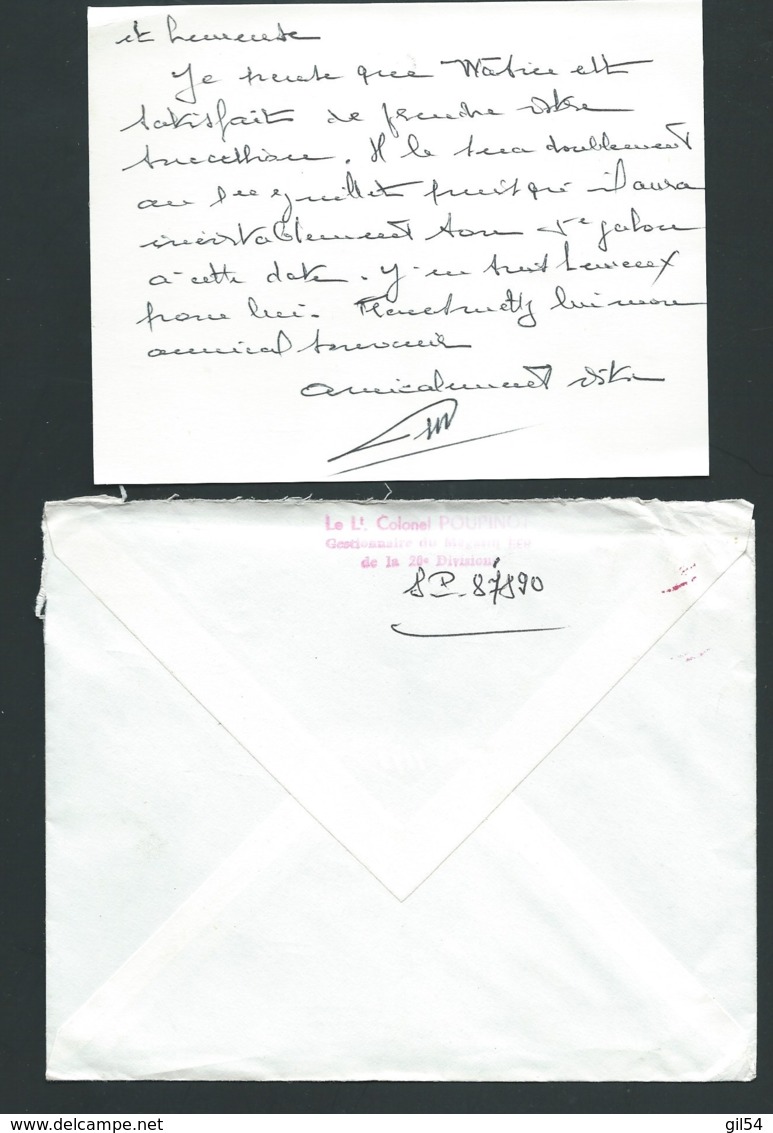 et heureuse
Je pense que Watier est
satisfait de prendre votre
succession. Il le sera doublement
au 1er Juillet puisqu'il aura
inévitablement son 5e galon
à cette date. J'en suis heureux
pour lui. Transmettez lui mon
amical souvenir
amicalement votre
Le Lt. Colonel POUPINOT
Gestionnaire du Magasin
de la 20e Division
S.P. 87890
www.delcampe.net
gil54